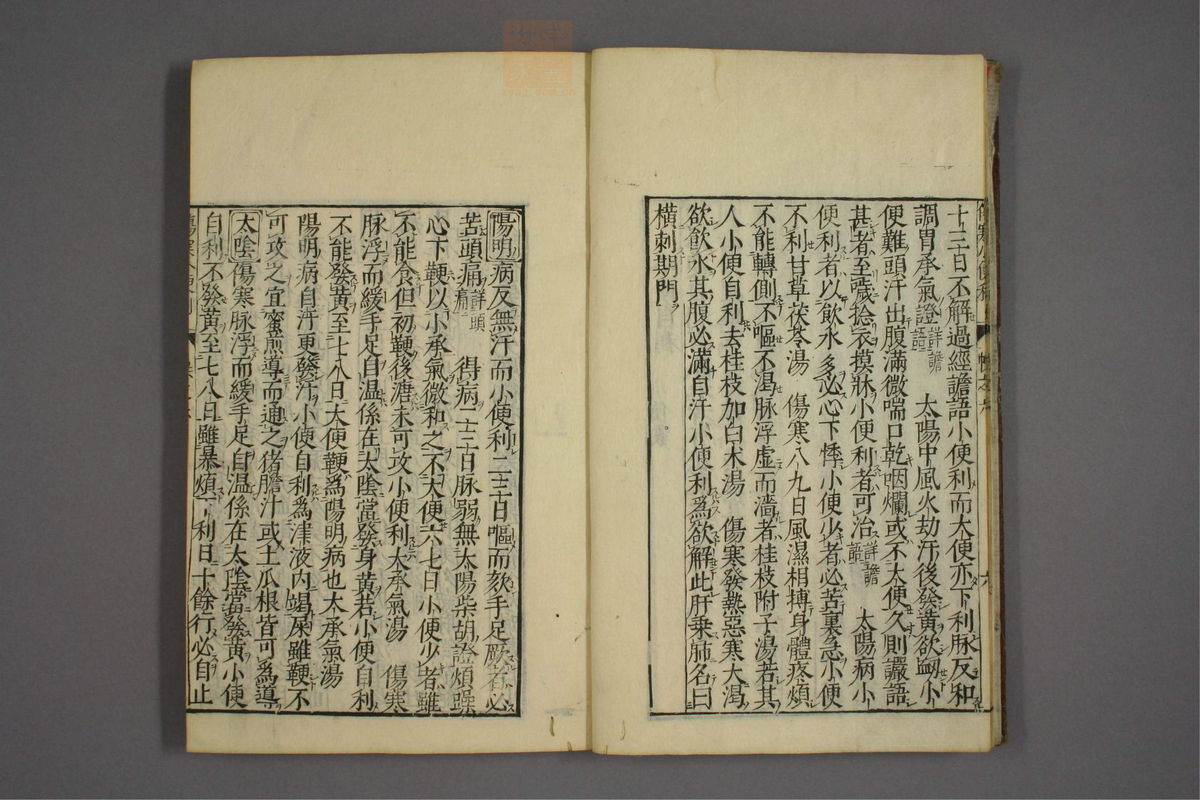 十三日不解過經譫語小便利而大便亦下利脉反和
調胃承氣證詳譫語　太陽中風火劫汗後發黃欲衂小
便難頭汗出腹滿微喘口乾咽爛或不大便久則讝語
甚者至噦捻衣摸牀小便利者可治詳譫語　太陽病小
便利者以飲水多必心下悸小便少者必苦裏急小便
不利甘草茯苓湯　傷寒八九日風濕相搏身體疼煩
不能轉側不嘔不渴脉浮虛而濇者桂枝附子湯若其
人小便自利去桂枝加白朮湯　傷寒發熱惡寒大渴
欲飲水其腹必滿自汗小便利爲欲解此肝乗肺名曰
橫刺期門
陽明病反無汗而小便利二三日嘔而欬手足厥者必
苦頭痛詳頭痛　得病二三日脉弱無太陽柴胡證煩躁
心下鞕以小承氣微和之不大便六七日小便少者雖
不能食但初鞕後溏未可攻小便利大承氣湯　傷寒
脉浮而緩手足自温係在太陰當發身黃若小便自利
不能發黃至七八日大便鞕爲陽明病也大承氣湯
陽明病自汗更發汗小便自利爲津液内竭屎雖鞕不
可攻之宜蜜煎導而通之猪膽汁或土瓜根皆可爲導
太陰傷寒脉浮而緩手足自温係在太陰當發黃小便
自利不發黃至七八日雖暴煩下利日十餘行必自止